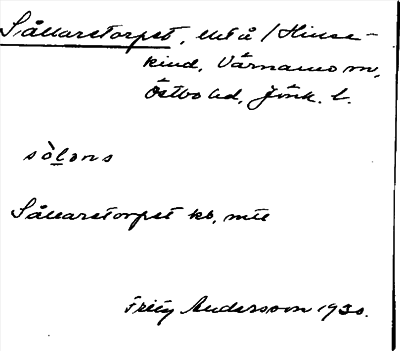 Sållarstorpet, utå / Hinse-
kind, Värnamo sn,
Östbo hd, Jönk. l.
sòlons
Sållarstorpet kb, mtl
Fritz Andersson 1930.